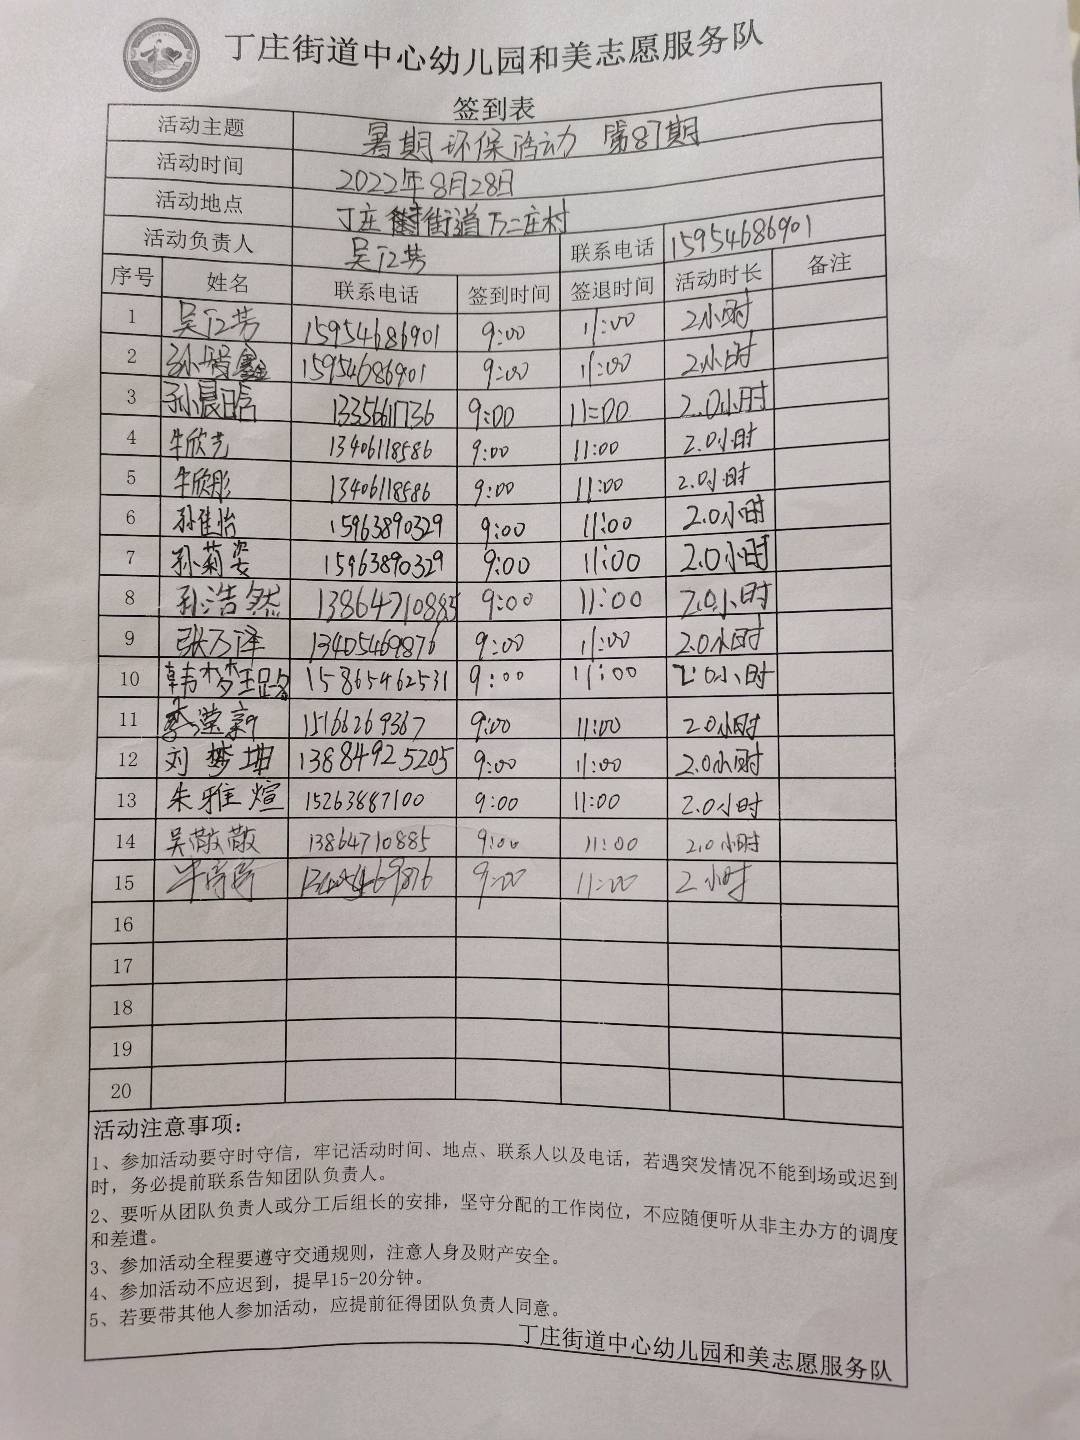 丁庄街道中心幼儿园和美志愿服务队
签到表
活动主题 暑期环保活动 第87期
活动时间 2022年8月28日
活动地点 丁庄街道万二庄村
活动负责人 吴江芳 联系电话 15954686901
序号 姓名 联系电话 签到时间 签退时间 活动时长 备注
1 吴江芳 15954686901 9:00 11:00 2小时
2 15954686901 9:00 11:00 2小时
3 孙晨晗 13356611736 9:00 11:00 2.0小时
4 牛欣艺 13406118586 9:00 11:00 2.0小时
5 牛欣彤 13406118586 9:00 11:00 2.0小时
6 孙佳怡 15963890329 9:00 11:00 2.0小时
7 孙菊姿 15963890329 9:00 11:00 2.0小时
8 孙浩然 13864710885 9:00 11:00 2.0小时
9 张万泽 13405469876 9:00 11:00 2.0小时
10 韩梦璐 15865462531 9:00 11:00 2.0小时
11 李滢新 15166269367 9:00 11:00 2.0小时
12 刘梦坤 13884925205 9:00 11:00 2.0小时
13 朱雅煊 15263887100 9:00 11:00 2.0小时
14 吴敬敬 13864710885 9:00 11:00 2.0小时
15 13405469876 9:00 11:00 2小时
16
17
18
19
20
活动注意事项：
1、参加活动要守时守信，牢记活动时间、地点、联系人以及电话，若遇突发情况不能到场或迟到
时，务必提前联系告知团队负责人。
2、要听从团队负责人或分工后组长的安排，坚守分配的工作岗位，不应随便听从非主办方的调度
和差遣。
3、参加活动全程要遵守交通规则，注意人身及财产安全。
4、参加活动不应迟到，提早15-20分钟。
5、若要带其他人参加活动，应提前征得团队负责人同意。
丁庄街道中心幼儿园和美志愿服务队